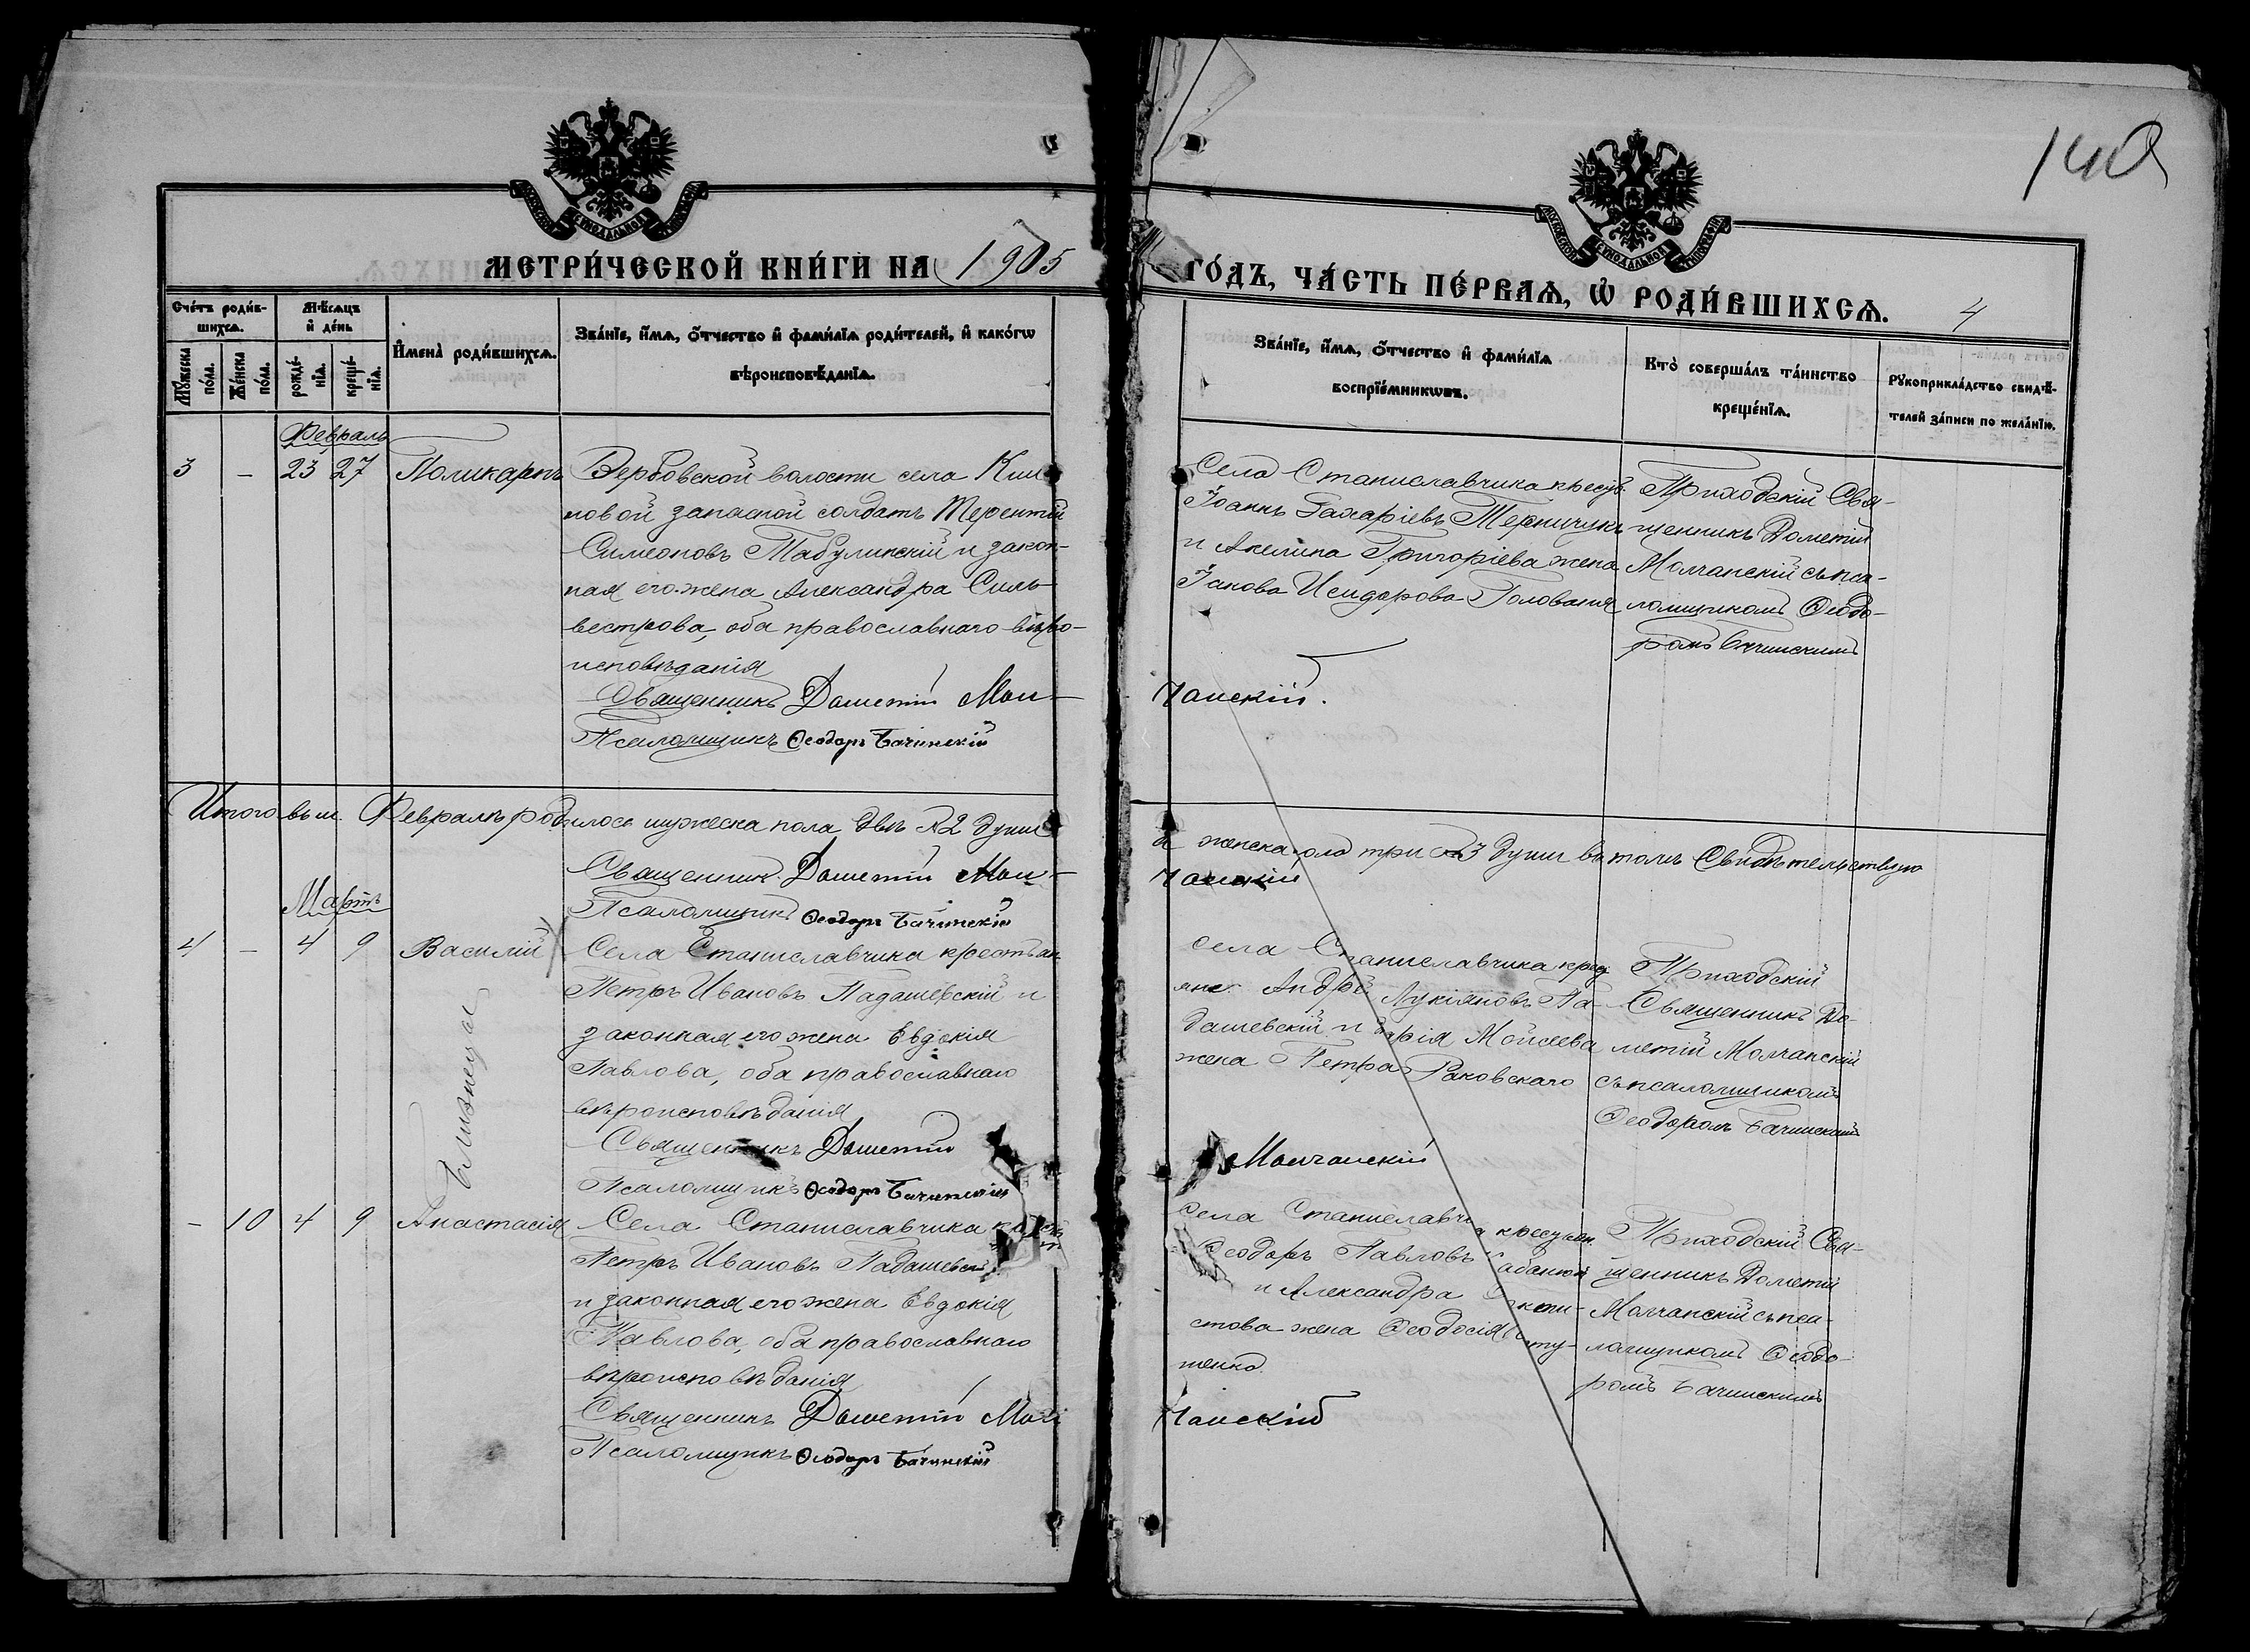 140
МЕТРИ́ЧЕСКОЙ КНИ́ГИ НА 1905
ГО́ДЪ, ЧА́СТЬ ПЕ́РВАѦ, Ѡ҆ РОДИ́ВШИХСѦ.
4
Сче́тъ роди́в-
шихсѧ.
Мѣ́сѧцъ
и҆ де́нь
Мꙋ́жеска
по́ла.
Же́нска
по́ла.
рожде́-
нїѧ.
креще́-
нїѧ.
И҆мена̀ роди́вшихсѧ.
Зва́нїе, и҆́мѧ, ѻ҆́тчество и҆ фами́лїѧ роди́телей, и҆ како́гѡ
вѣроисповѣ́данїѧ.
Зва́нїе, и҆́мѧ, ѻ҆́тчество и҆ фами́лїѧ
воспрїе́мникѡвъ.
Кто̀ соверша́лъ та́инство
креще́нїѧ.
Рꙋкоприкла́дство свидѣ́-
телей за́писи по жела́нїю.
Февраль
3 – 23 27 Поликарпъ
Вербовской волости села Кли
новой запасной солдатъ Терентій
Симеоновъ Табулинскій и закон-
ная его жена Александра Силь-
вестрова, оба православнаго вѣро-
исповѣданія
Священникъ Дометій Мол-
Псаломщикъ Ѳеодоръ Бачинскій
Села Станиславчика
Іоаннъ Захаріевъ
и Акелина Григоріева жена
Іакова Исидорова
чанскій.
Приходскій Свя-
щенникъ Дометій
Молчанскій съ пса-
ломщикомъ Ѳеодо-
ромъ Бачинскимъ
Итого въ м. Февралѣ родилось мужеска пола двѣ 2 души
а женска три 3 души въ томъ Свидѣтельствую
Священникъ Дометій Мол-
чанскій
Псаломщикъ Ѳеодоръ Бачинскій
Мартъ
4 – 4 9 Василій
Близнецы
Села Станиславчика крестьян
Петръ Ивановъ Падашевскій и
законная его жена Евдокія
Павлова, оба православнаго
вѣроисповѣданія
Священникъ Дометій
Псаломщикъ Ѳеодоръ Бачинскій
села Станиславчика
Андрей Лукіяновъ Па-
дашевскій и Марія Моисеева
жена Петра Раковскаго
Молчанскій
Приходскій
Священникъ До-
метій Молчанскій
съ псаломщикомъ
Ѳеодоромъ Бачинскимъ
– 10 4 9 Анастасія
Села Станиславчика
Петръ Ивановъ Падашевскій
и законная его жена Евдокія
Павлова, оба православнаго
вѣроисповѣданія
Священникъ Дометій Мол
Псаломщикъ Ѳеодоръ Бачинскій
Села
Ѳеодоръ Павловъ
и Александра
стова жена Ѳеодосія
тенко.
чанскій
Приходскій Свя-
щенникъ Дометій
Молчанскій съ пса-
ломщикомъ Ѳеодо-
ромъ Бачинскимъ